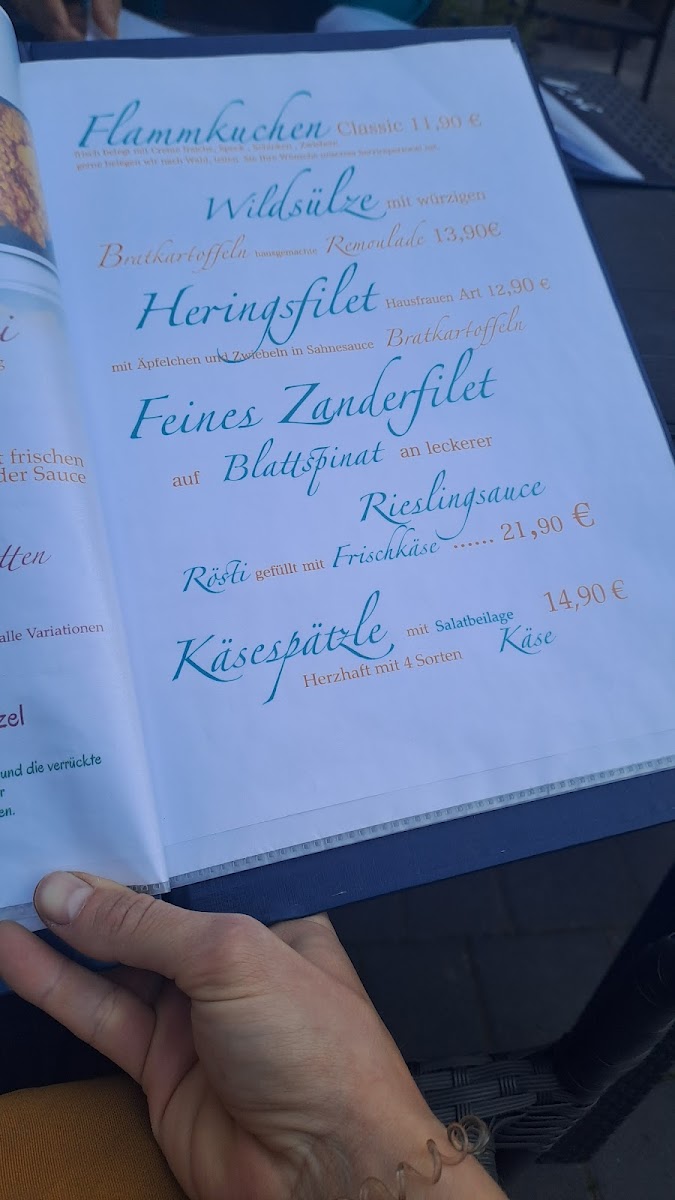 Flammkuchen Classic 11,90 €
frisch belegt mit Creme fraiche, Speck, Schinken, Zwiebeln
gerne belegen wir nach Wahl, teilen Sie Ihre Wünsche unserem Servicepersonal mit.
Wildsülze mit würzigen
Bratkartoffeln hausgemachte Remoulade 13,90€
Heringsfilet Hausfrauen Art 12,90 €
mit Äpfelchen und Zwiebeln in Sahnesauce Bratkartoffeln
Feines Zanderfilet
auf Blattspinat an leckerer
Rieslingsauce
Rösti gefüllt mit Frischkäse ...... 21,90 €
Käsespätzle mit Salatbeilage 14,90 €
Herzhaft mit 4 Sorten Käse
i
g
t frischen
der Sauce
tten
alle Variationen
zel
und die verrückte
r
en.